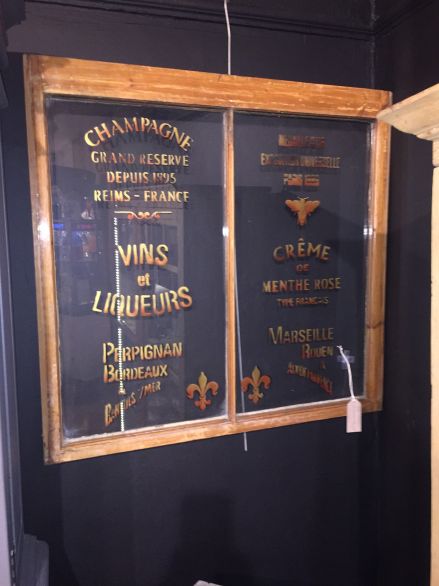 CHAMPAGNE
GRAND RESERVE
DEPUIS 1895
REIMS - FRANCE
VINS
et
LIQUEURS
PERPIGNAN
BORDEAUX
&
/MER
EXPOSITION UNIVERSELLE
PARIS
CRÊME
DE
MENTHE ROSE
TYPE FRANCAIS
MARSEILLE
ROUEN
&